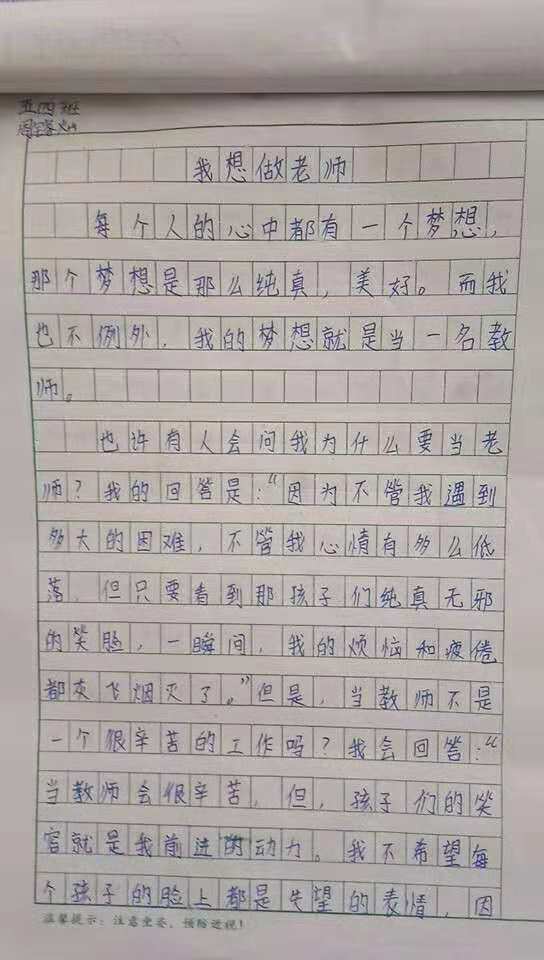 五四班
我想做老师
每个人的心中都有一个梦想，
那个梦想是那么纯真，美好。而我
也不例外，我的梦想就是当一名教
师。
也许有人会问我为什么要当老
师？我的回答是：“因为不管我遇到
多大的困难，不管我心情有多么低
落，但只要看到那孩子们纯真无邪
的笑脸，一瞬间，我的烦恼和疲倦
都灰飞烟灭了。”但是，当教师不是
一个很辛苦的工作吗？我会回答：“
当教师会很辛苦，但，孩子们的笑
容就是我前进的动力。我不希望每
个孩子的脸上都是失望的表情，因
温馨提示：注意坐姿，预防近视！